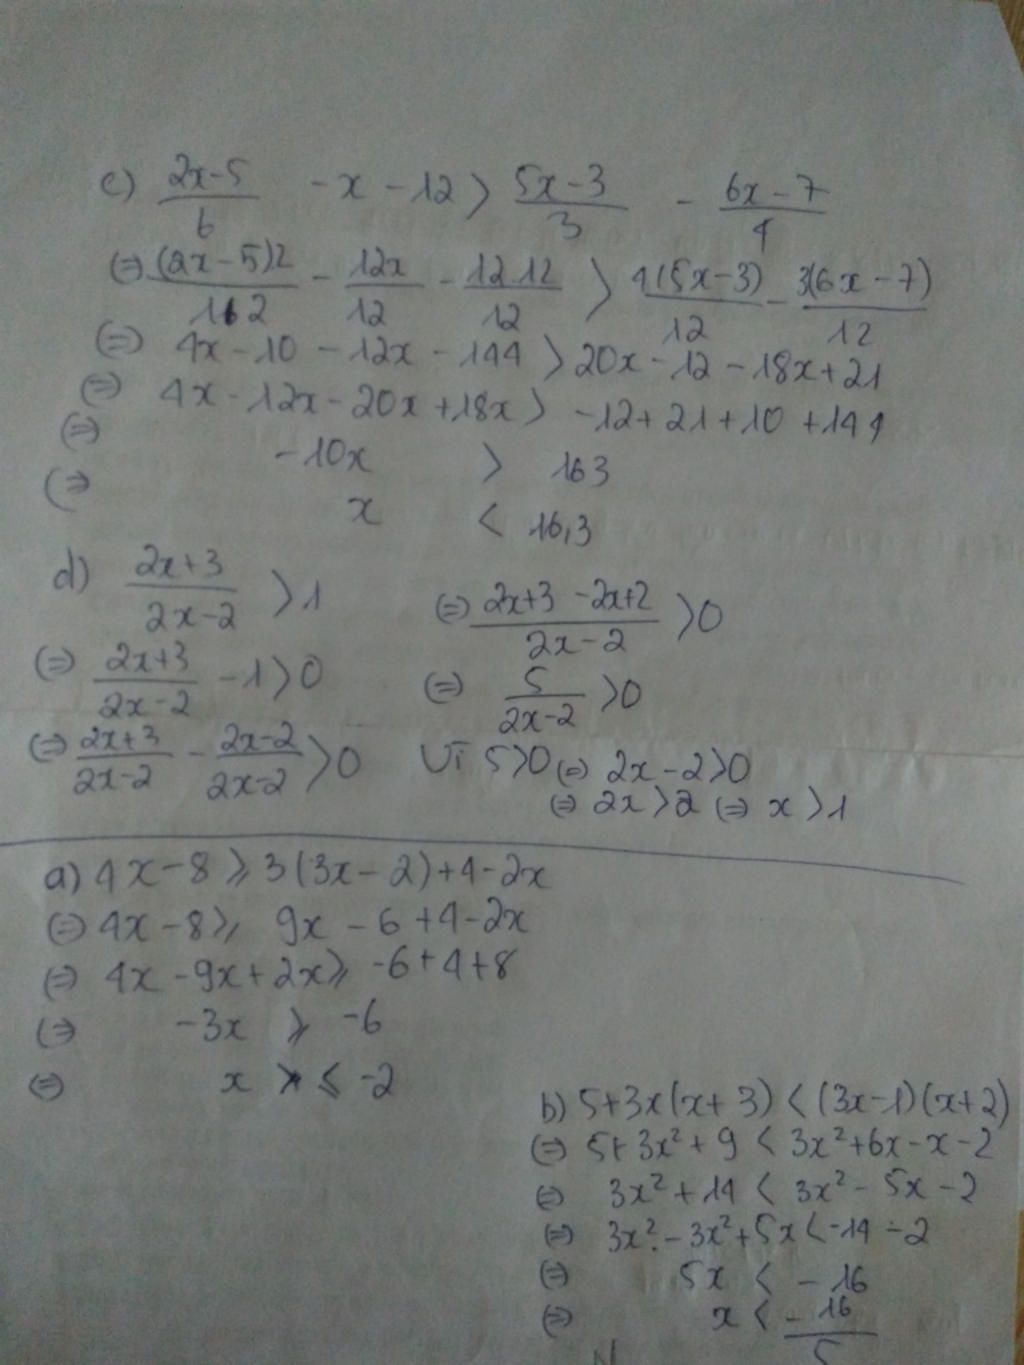 c) (2x-5)/6 - x - 12 > (5x-3)/3 - (6x-7)/4
(=) (2x-5).2/12 - 12x/12 - 12.12/12 > 4(5x-3)/12 - 3(6x-7)/12
(=) 4x - 10 - 12x - 144 > 20x - 12 - 18x + 21
(=) 4x - 12x - 20x + 18x > -12 + 21 + 10 + 144
(=) -10x > 163
(=) x < 16,3
d) (2x+3)/(2x-2) > 1
(=) (2x+3)/(2x-2) - 1 > 0
(=) (2x+3)/(2x-2) - (2x-2)/(2x-2) > 0
(=) (2x+3 - 2x+2)/(2x-2) > 0
(=) 5/(2x-2) > 0
Vì 5 > 0 (=) 2x - 2 > 0
(=) 2x > 2 (=) x > 1
a) 4x - 8 ⩾ 3(3x - 2) + 4 - 2x
(=) 4x - 8 ⩾ 9x - 6 + 4 - 2x
(=) 4x - 9x + 2x ⩾ -6 + 4 + 8
(=) -3x ⩾ -6
(=) x ⩽ -2
b) 5 + 3x(x + 3) < (3x - 1)(x + 2)
(=) 5 + 3x² + 9 < 3x² + 6x - x - 2
(=) 3x² + 14 < 3x² - 5x - 2
(=) 3x² - 3x² + 5x < -14 - 2
(=) 5x < -16
(=) x < -16/5